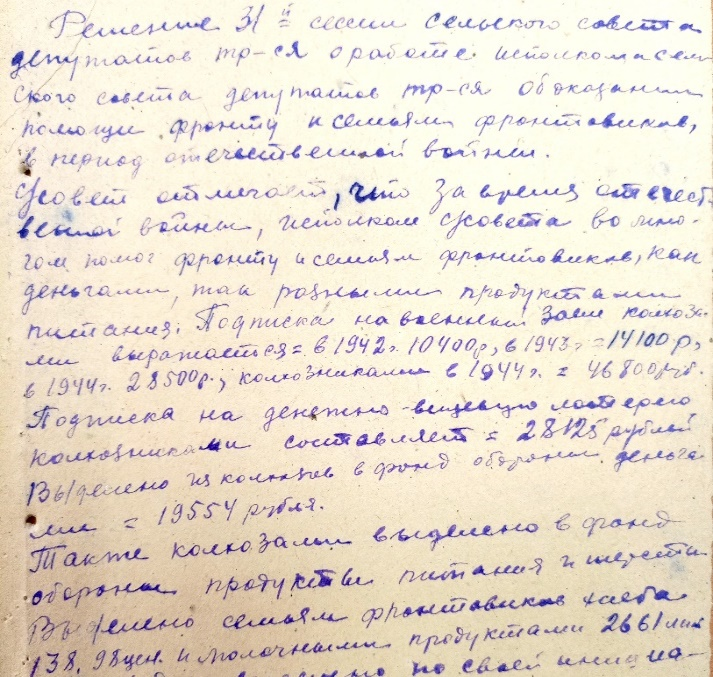 Решение 31й сессии сельского совета
депутатов тр-ся о работе исполкома сель
ского совета депутатов тр-ся об оказании
помощи фронту и семьям фронтовиков,
в период отечественной войны.
С/совет отмечает, что за время отечест-
венной войны, исполком с/совета во мно-
гом помог фронту и семьям фронтовиков, как
деньгами, так разными продуктами
питания. Подписка на военный заем колхоза-
ми выражается = в 1942г. 10400р, в 1943г = 14100р,
в 1944г. 28500р., колхозниками в 1944г. = 46800руб.
Подписка на денежно-вещевую лотерею
колхозниками составляет = 28125 рублей
Выделено из колхозов в фонд обороны деньга
ми = 19554 рубля.
Также колхозами выделено в фонд
обороны продуктов питания и шерсти
Выделено семьям фронтовиков хлеба
138,98цен. и молочными продуктами 2661
по своей инициа-